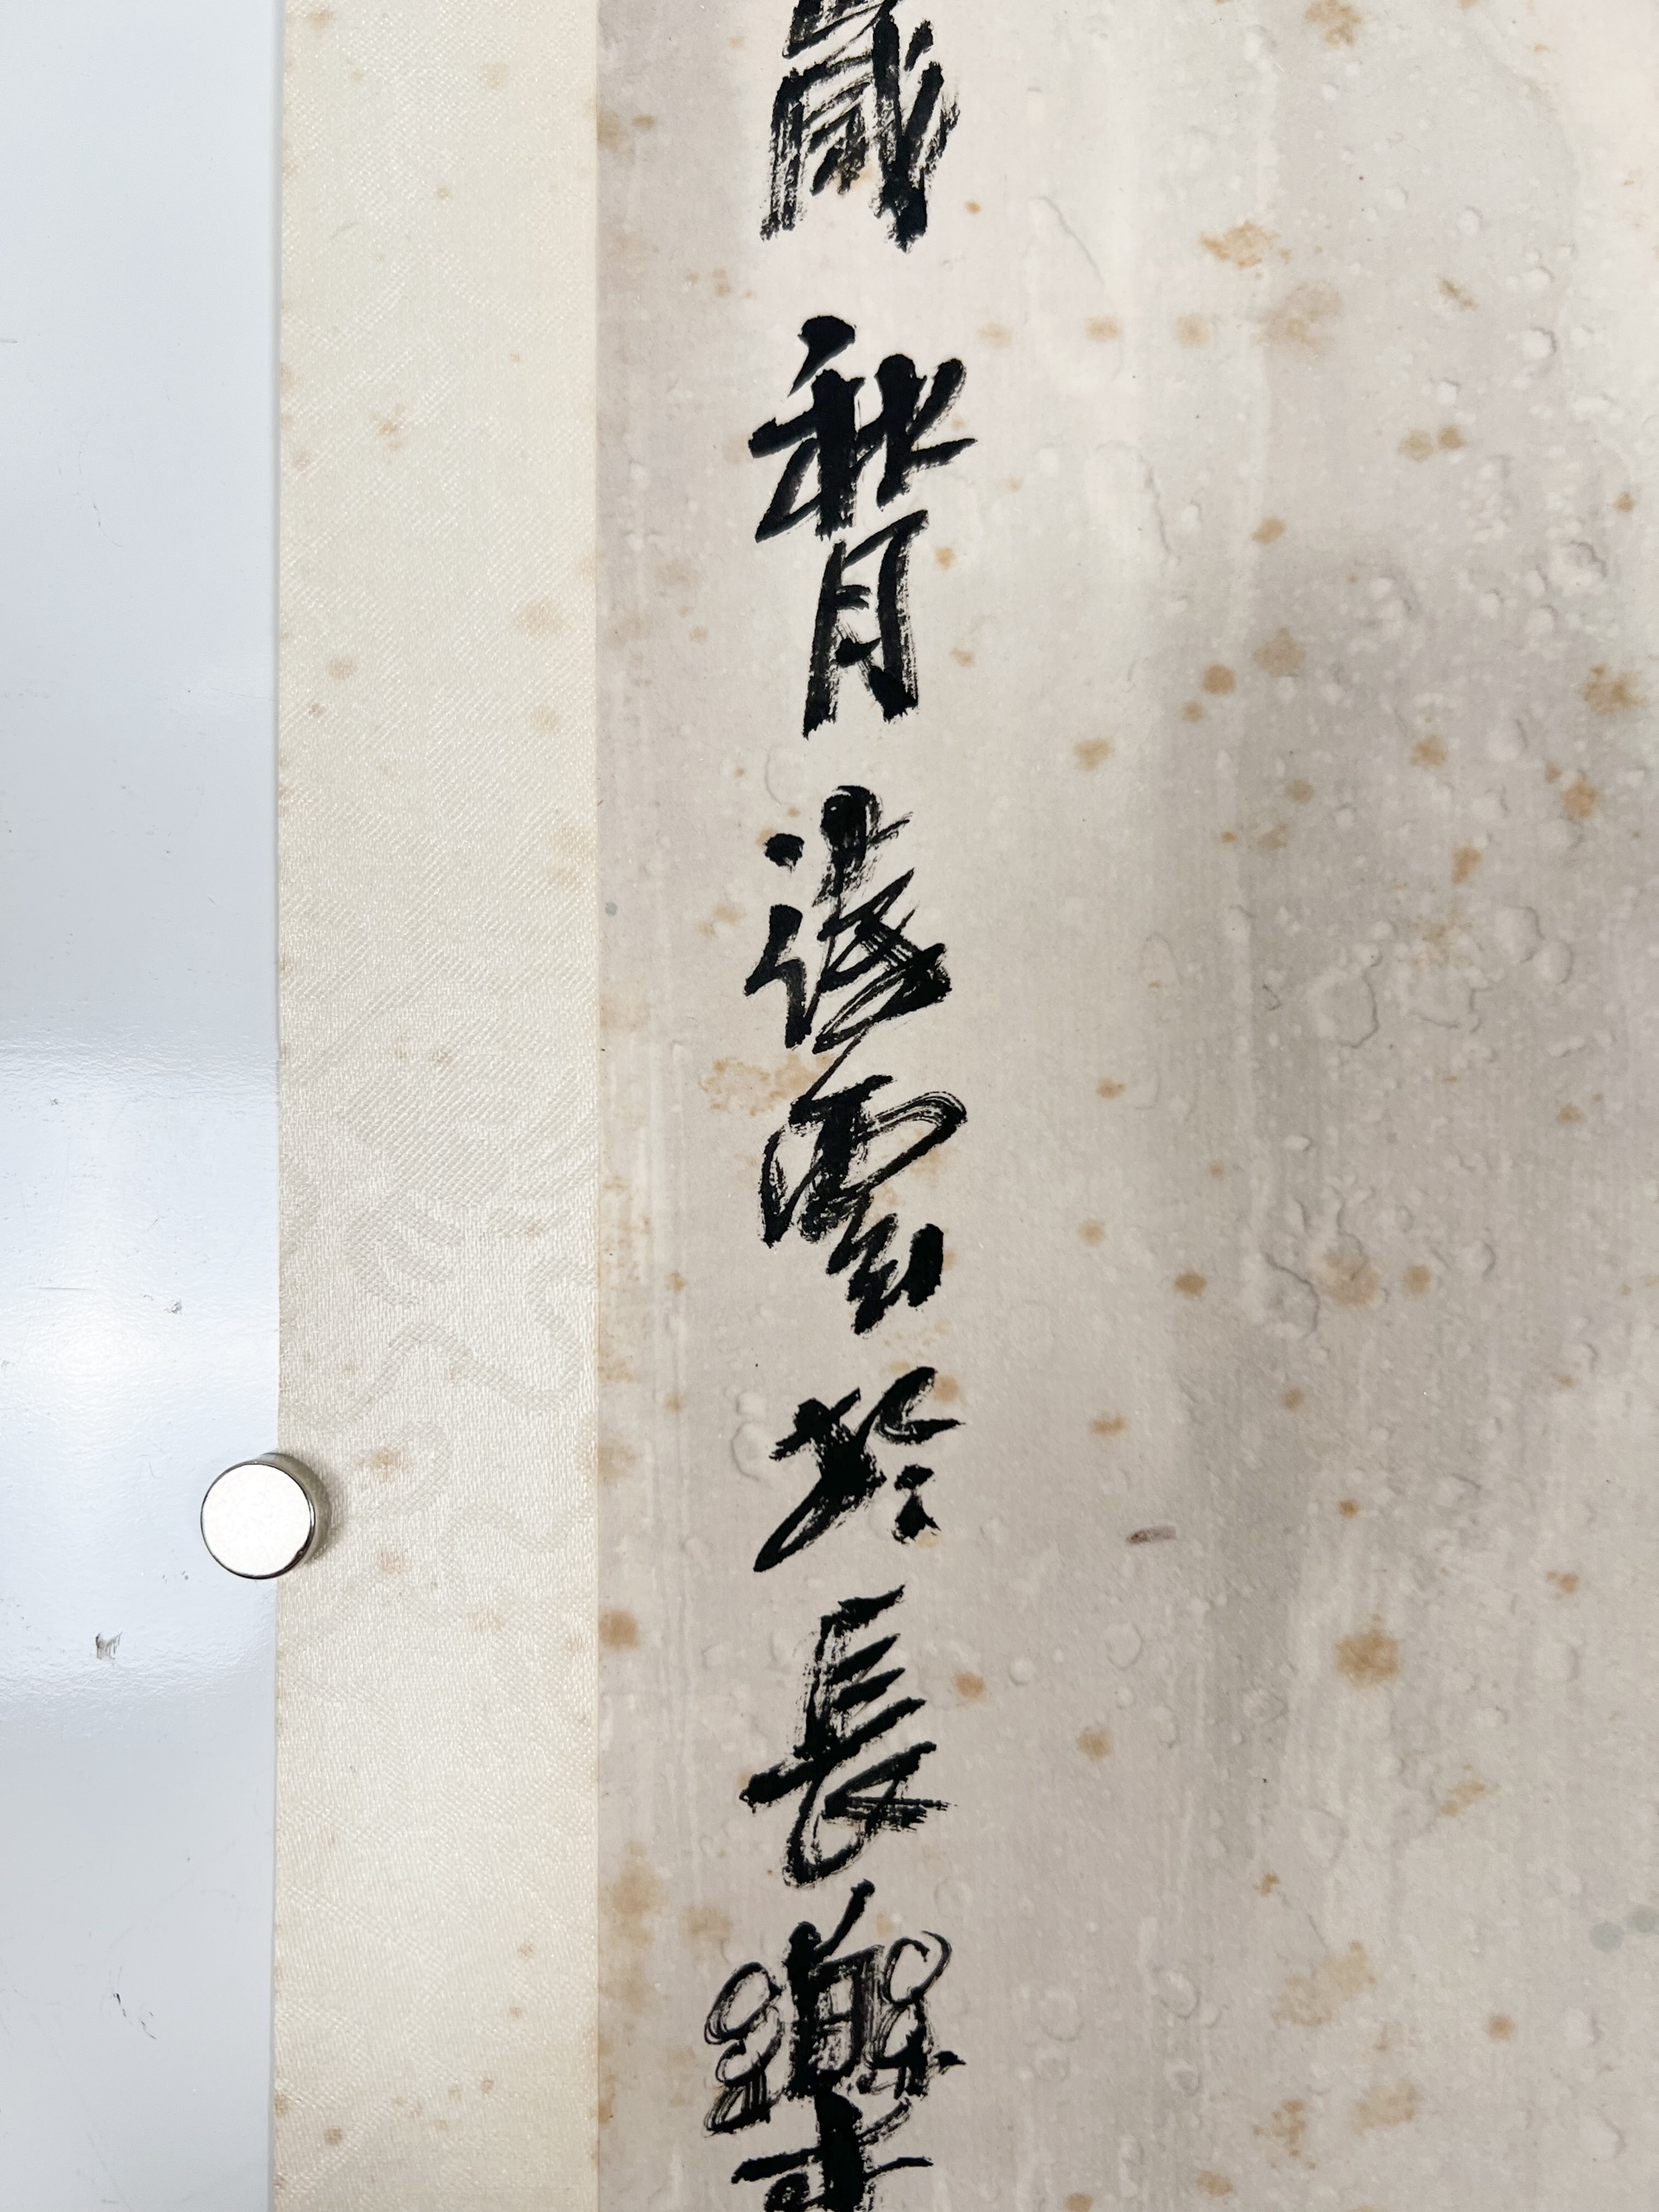 歲秋月凌雲於長樂